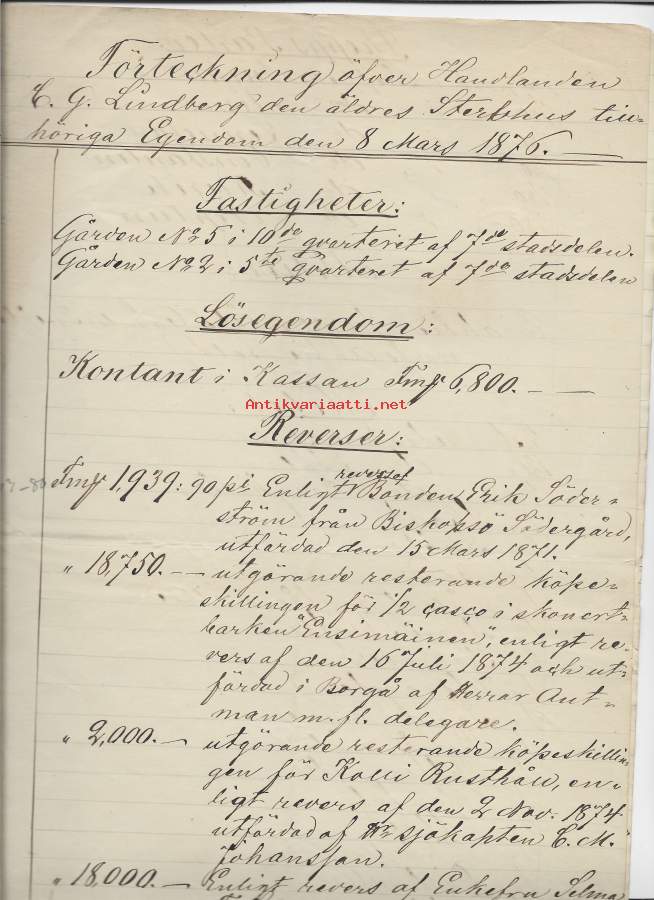 Förteckning öfver Handlanden
C. G. Lindberg den äldres Sterbhus till-
höriga Egendom den 8 Mars 1876. —
Fastigheter:
Gården No 5 i 10de qvarteret af 7de stadsdelen.
Gården No 2 i 5te qvarteret af 7de stadsdelen
Lösegendom:
Kontant i Kassan Fmk 6,800. — —
Antikvariaatti.net
Reverser:
Fmk 1,939: 90 pi Enligt reverset Bonden Erik Söder-
ström från Bishopsö Södergård,
utfärdad den 15 Mars 1871.
" 18,750. — utgörande resterande köpe-
skillingen för 1/2 casco i skonert-
barken "Ensimäinen", enligt re-
vers af den 16 Juli 1874 och ut-
färdad i Borgå af Herrar Aut-
man m. fl. delegare.
" 2,000. — utgörande resterande köpeskillin-
gen för Kolli Rusthåll, en-
ligt revers af den 2 Nov: 1874
utfärdad af Hr sjökapten C. M.
Johansson.
" 18,000. — Enligt revers af Enkefru Selma